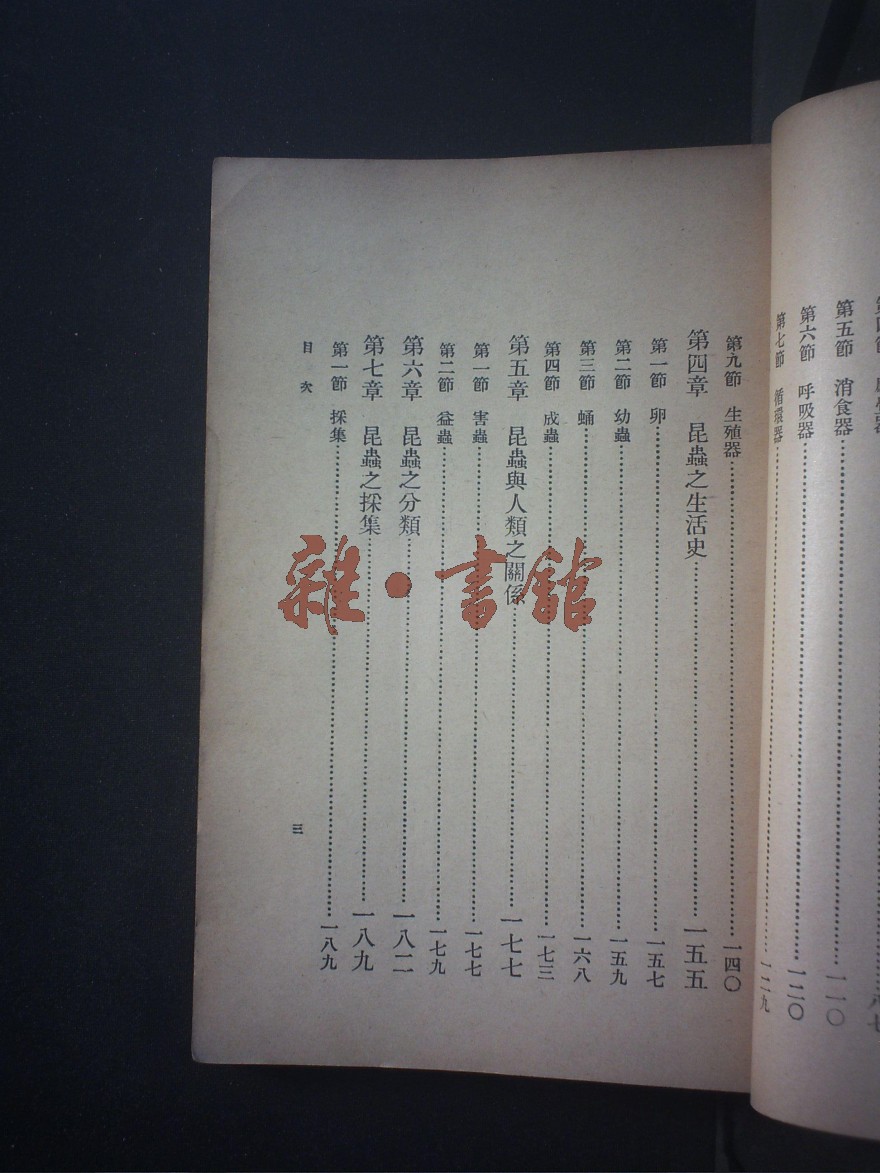 第五節　消食器……一一〇
第六節　呼吸器……一二〇
第七節　循環器……一二九
第九節　生殖器……一四〇
第四章　昆蟲之生活史……一五五
第一節　卵……一五七
第二節　幼蟲……一五九
第三節　蛹……一六八
第四節　成蟲……一七三
第五章　昆蟲與人類之關係……一七七
第一節　害蟲……一七七
第二節　益蟲……一七九
第六章　昆蟲之分類……一八二
第七章　昆蟲之採集……一八九
第一節　採集……一八九
目次
三
雜・書館